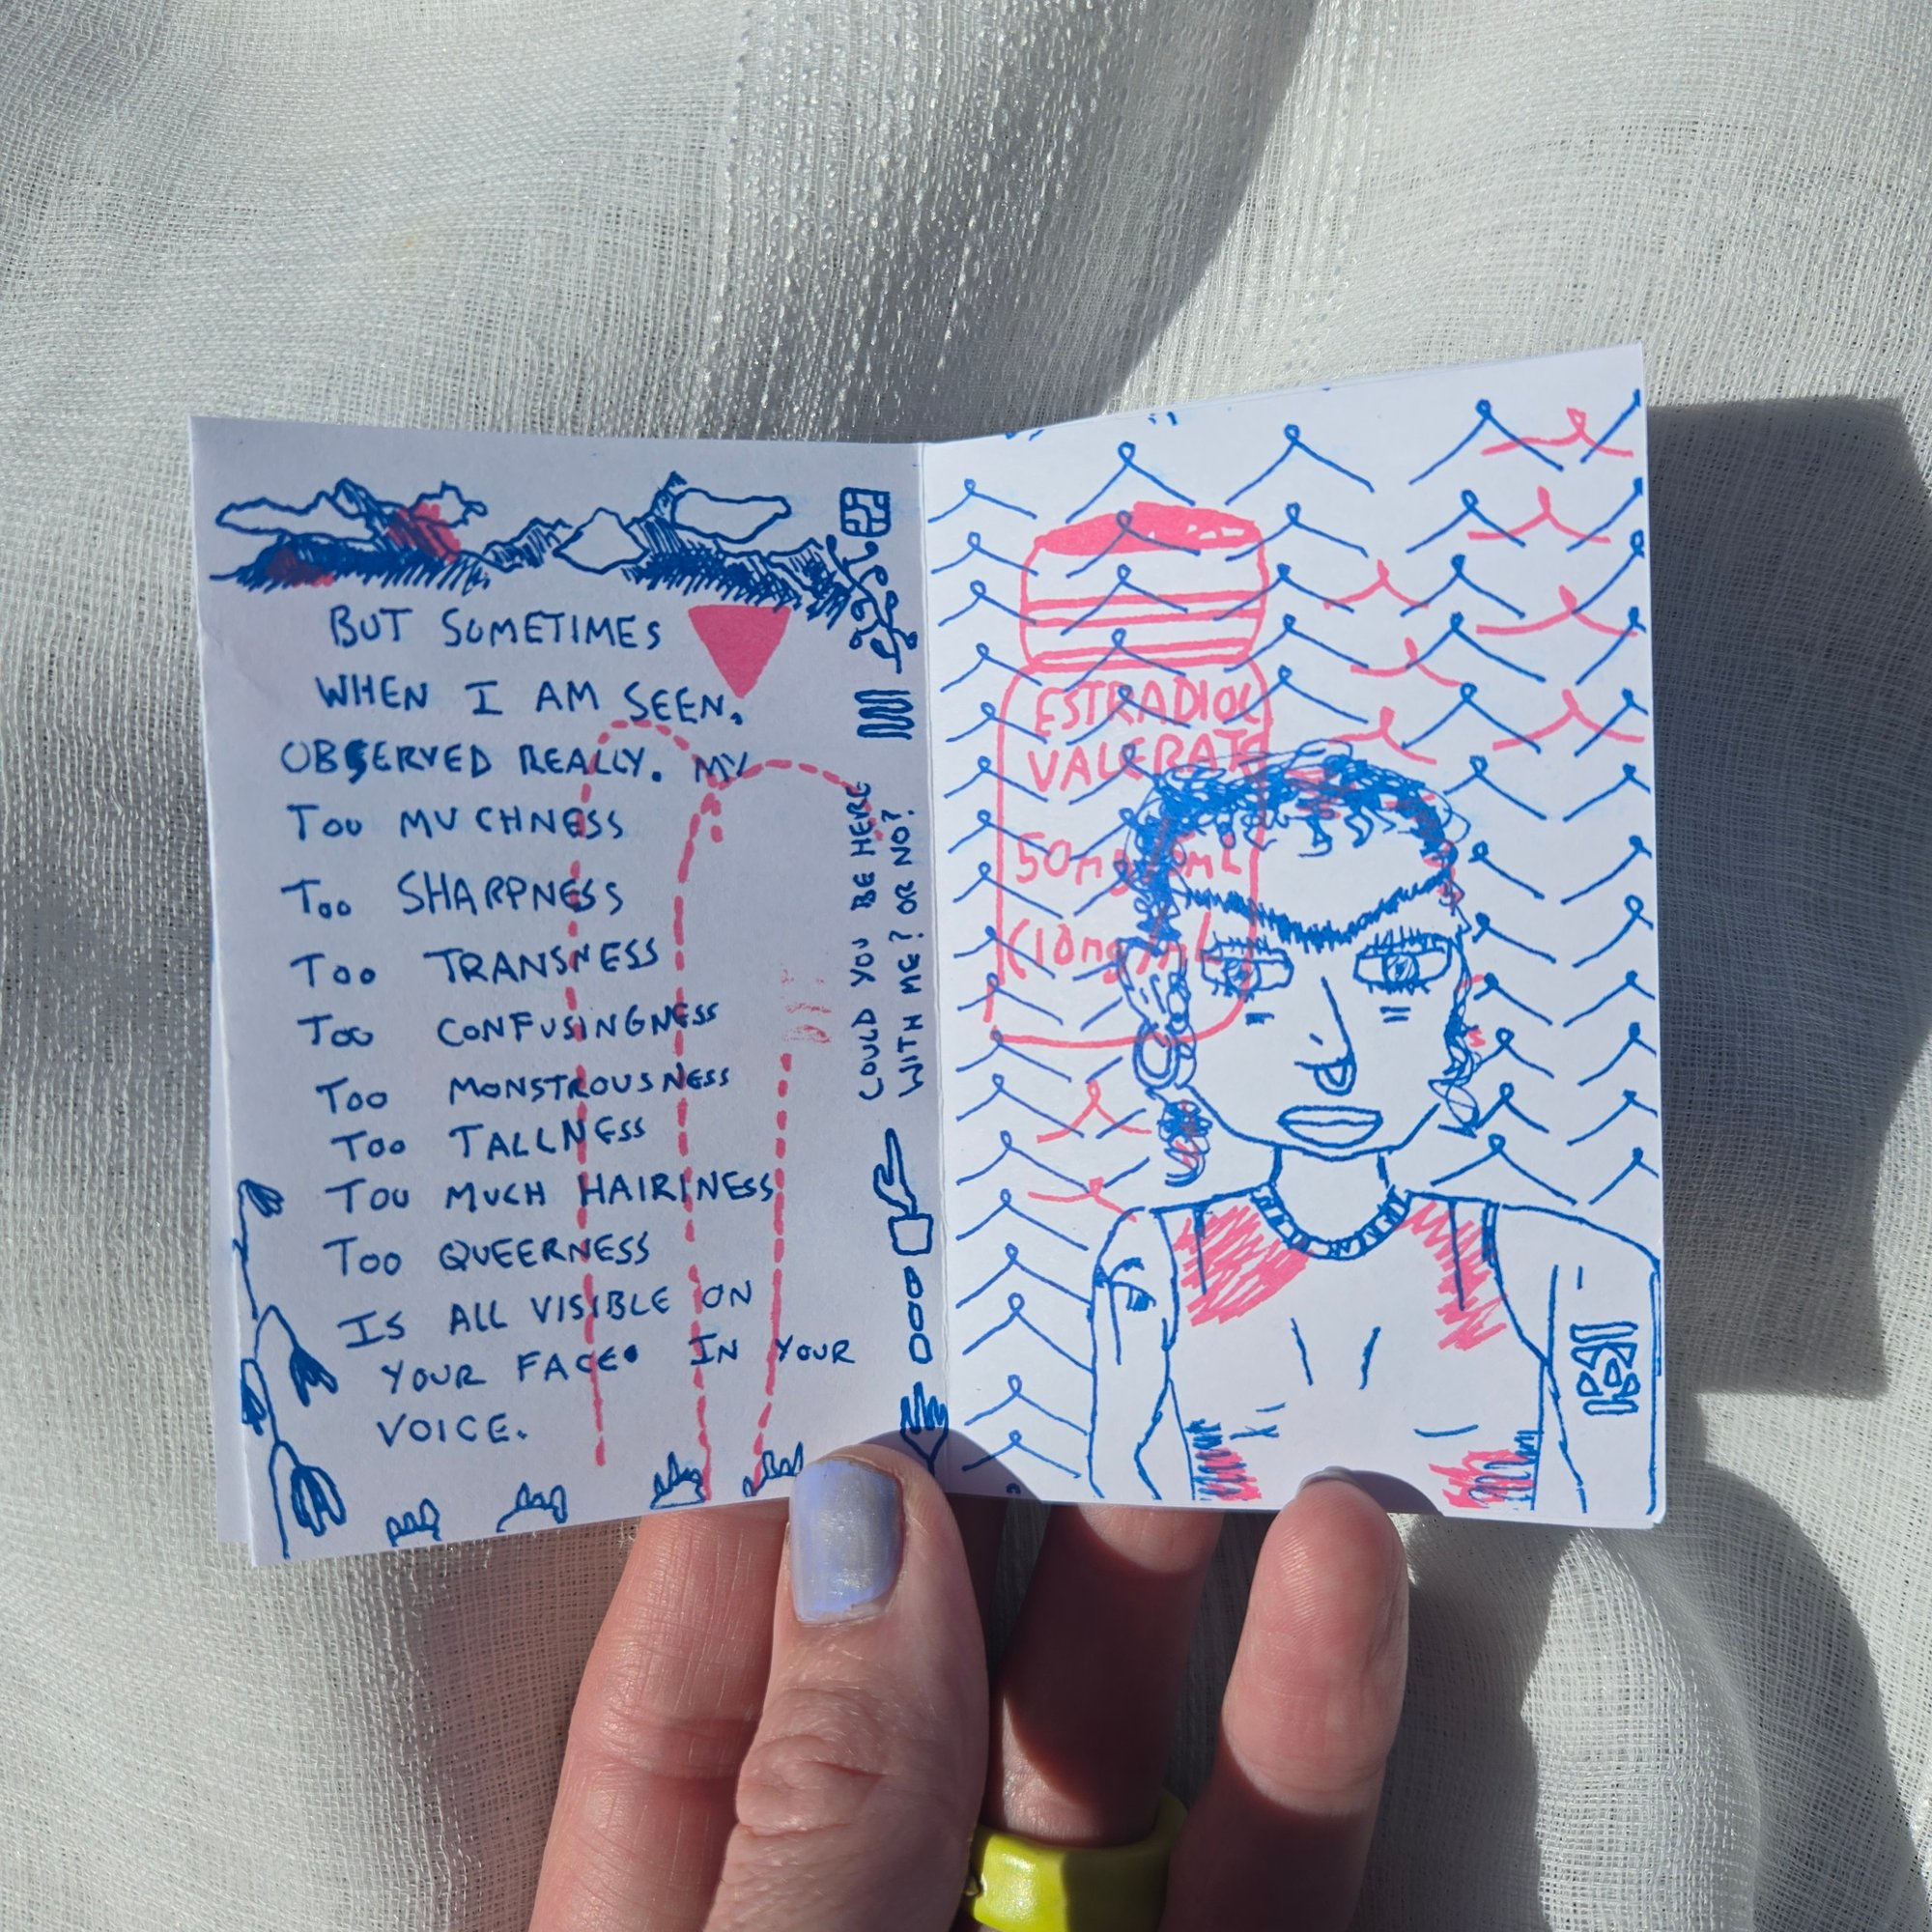 BUT SOMETIMES
WHEN I AM SEEN,
OBSERVED REALLY. MY
TOO MUCHNESS
TOO SHARPNESS
TOO TRANSNESS
TOO CONFUSINGNESS
TOO MONSTROUSNESS
TOO TALLNESS
TOO MUCH HAIRINESS
TOO QUEERNESS
IS ALL VISIBLE ON
YOUR FACE. IN YOUR
VOICE.
COULD YOU BE HERE
WITH ME? OR NO?
ESTRADIOL
VALERATE
(10mg/mL